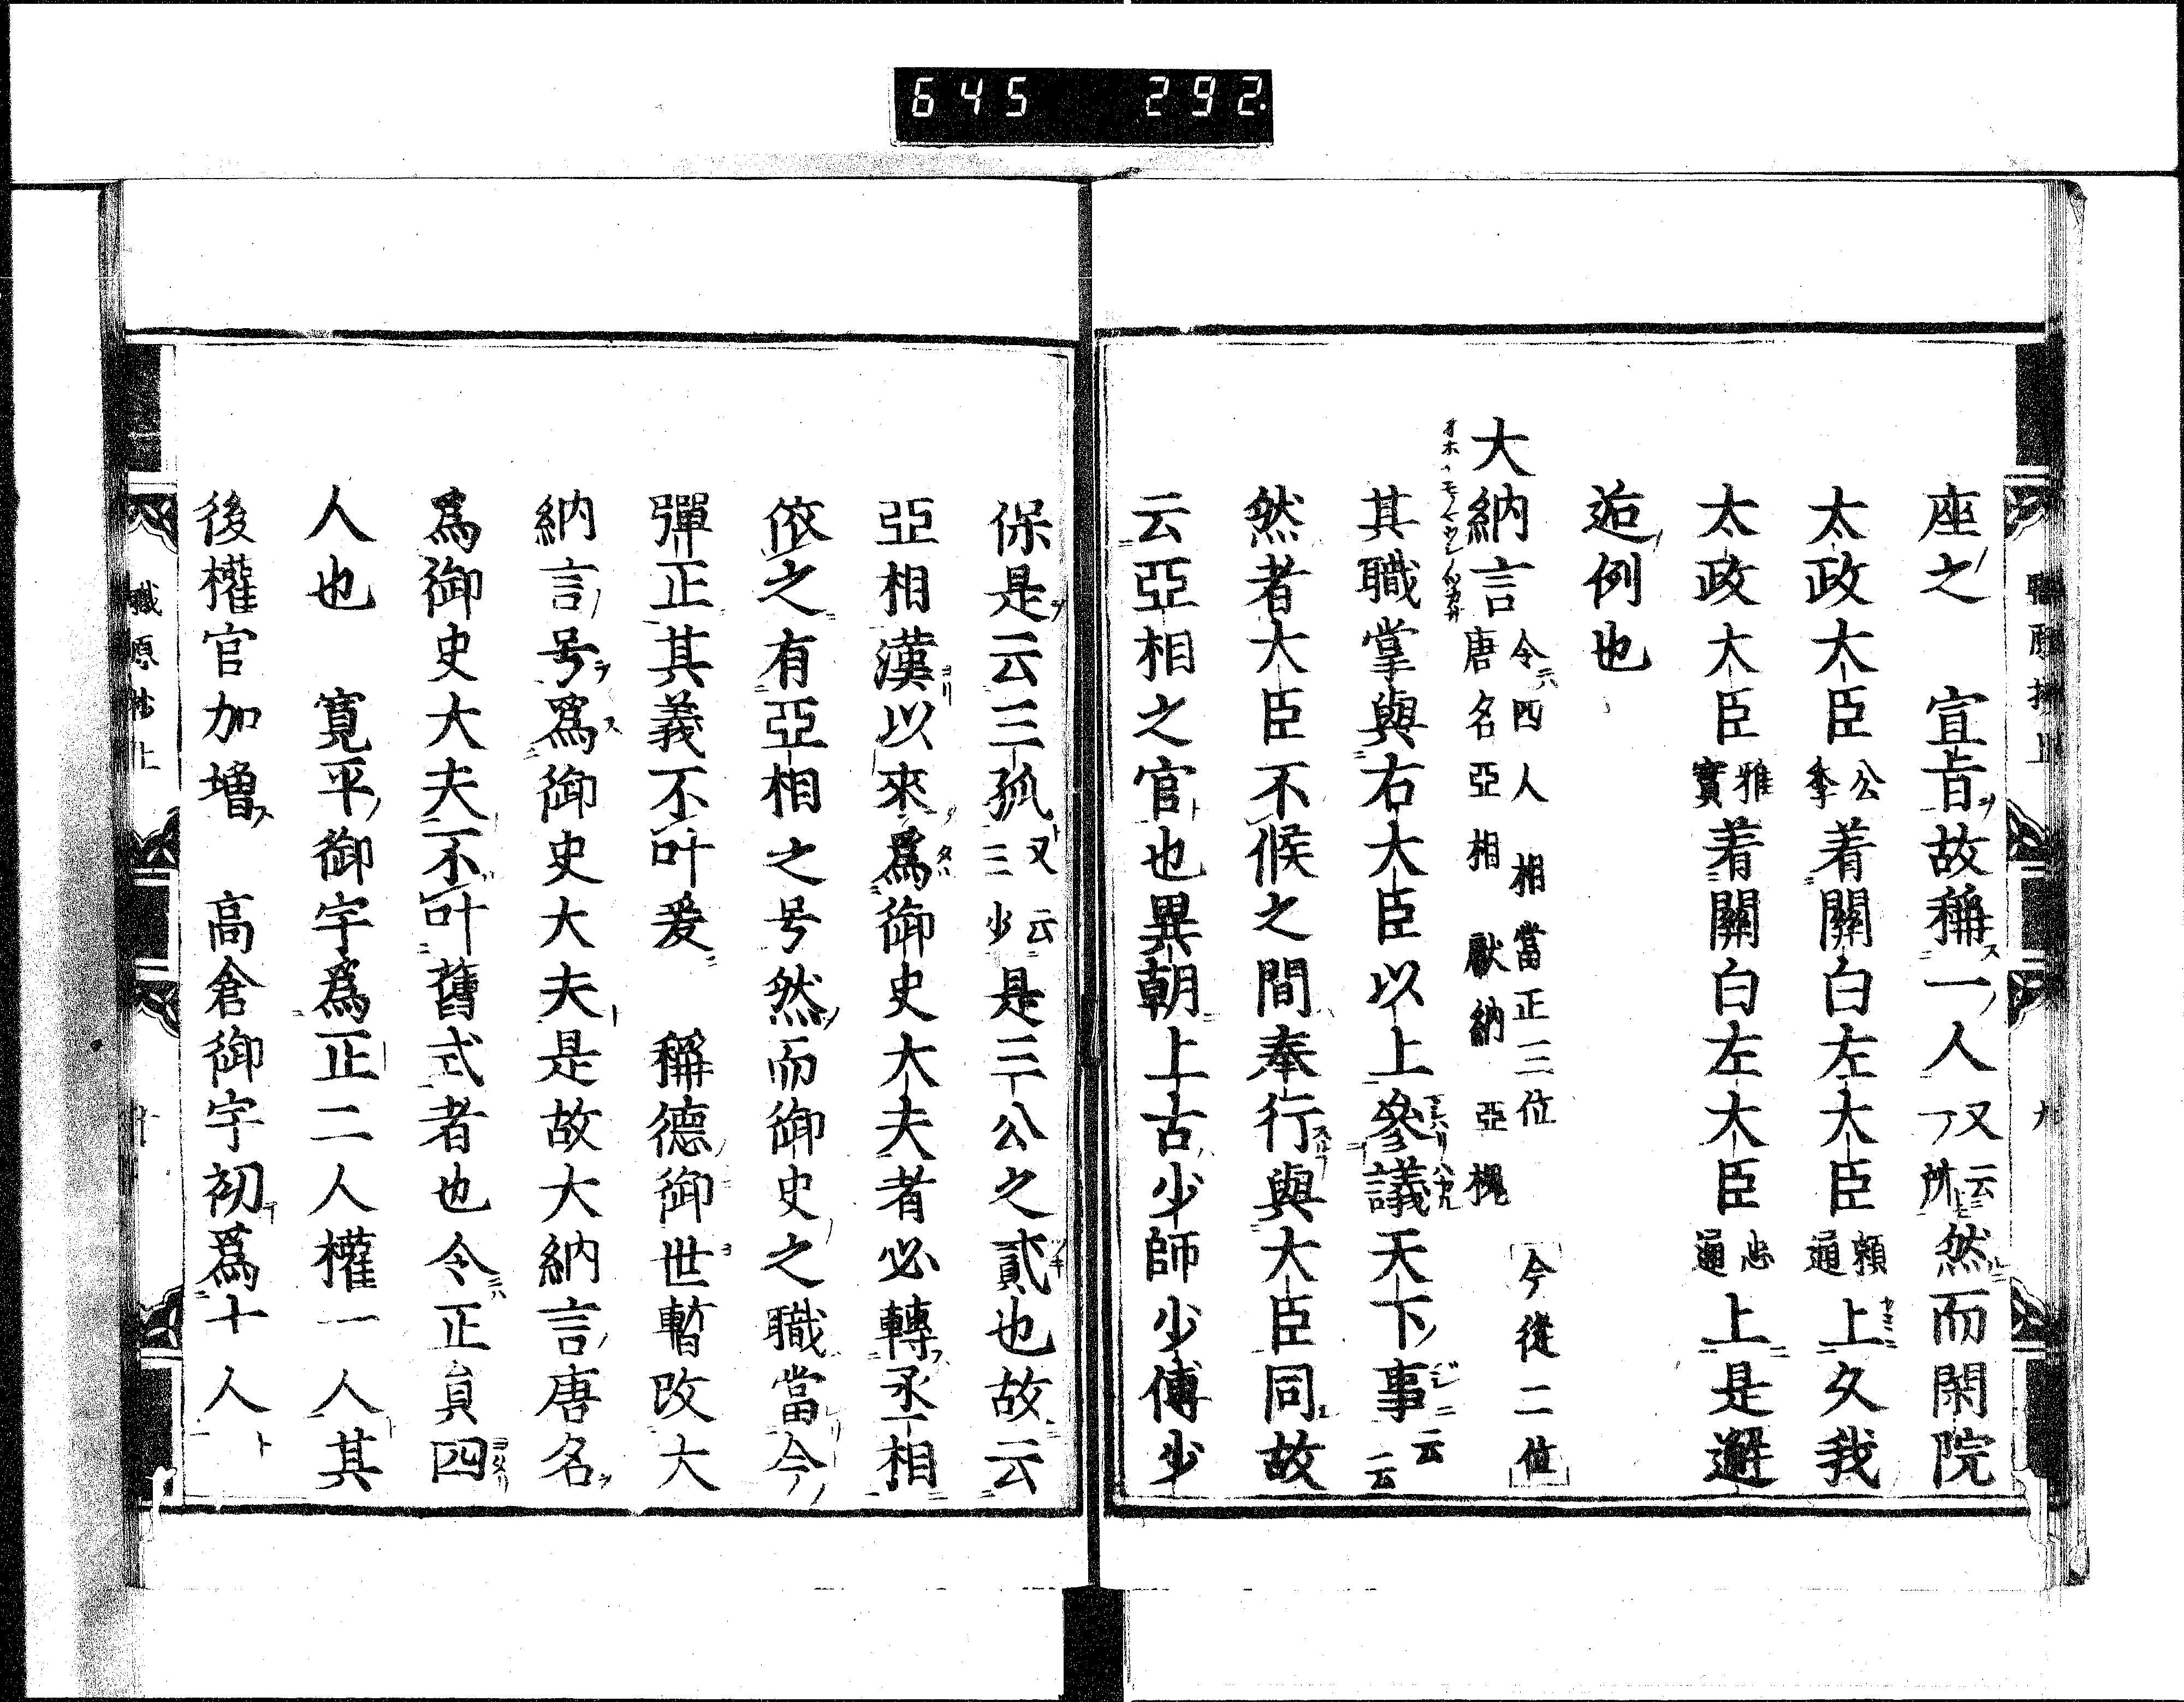 645 292
座之 宣旨故稱一人 又云一ノ所 然而閑院
太政大臣 公季 着關白左大臣 頼通 上久我
太政大臣 雅實 着關白左大臣 忠通 上是邂
逅例也
大納言 令四人 相當正三位 今從二位
唐名亞相 獻納 亞槐
其職掌與右大臣以上參議天下事云云
然者大臣不候之間奉行與大臣同故
云亞相之官也異朝上古少師少傅少
保是云三孤 又云三少 是三公之貳也故云
亞相漢以來爲御史大夫者必轉丞相
依之有亞相之号然而御史之職當今
彈正其義不叶爰 稱德御世暫改大
納言号爲御史大夫是故大納言唐名
爲御史大夫不叶舊式者也令正員四
人也 寛平御宇爲正二人權一人其
後權官加增 高倉御宇初爲十人
職原抄上 九
職原抄上 十